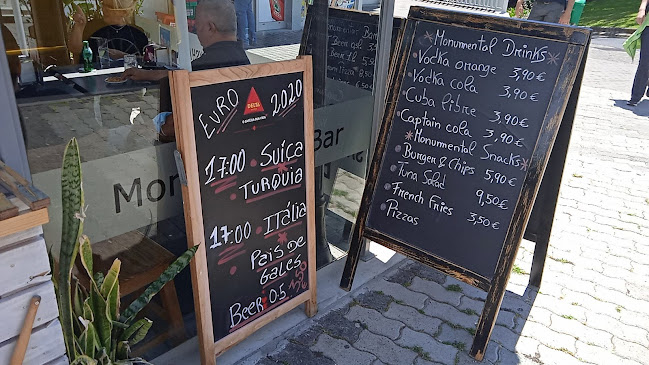 EURO 2020
DELTA
17:00 Suíça
Turquia
17:00 . Itália
País de
Gales
Beer 0.5 3,50
Mon
Bar
Monumental Drinks
Vodka orange 3,90€
Vódka cola 3,90€
Cuba libre 3,90€
Captain cola 3,90€
Monumental Snacks
Burger & Chips 5,90€
Tuna Salad 9,50€
French Fries 3,50€
Pizzas